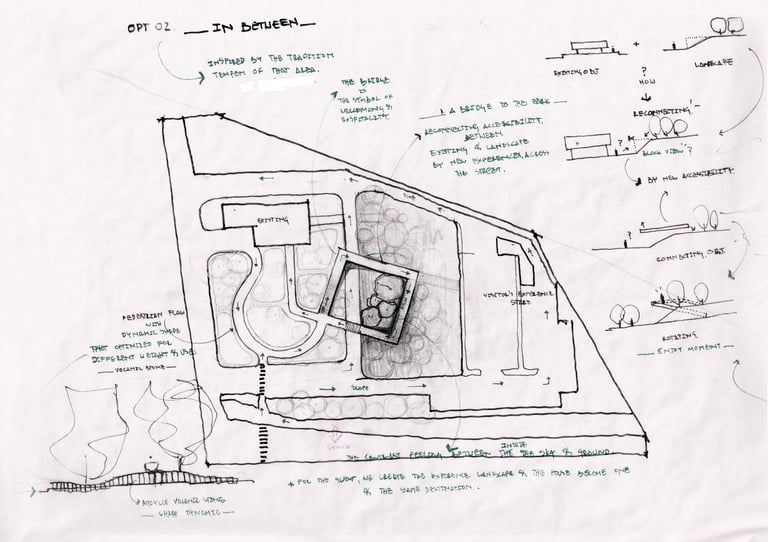 OPT 02. — IN BETWEEN —
INSPIRED BY THE TRADITION
TEMPEM OF THAT AREA.
THE BRIDGE
IS
THE SYMBOL OF
WELCOMING &
HOSPITALITY.
A BRIDGE TO THE PARK —
RECONNECTING ACCESSIBILITY,
BETWEEN
EXISTING & LANDSCAPE
BY NEW EXPERIENCES, ACROSS
THE STREET.
EXISTING OBJ
+
LANDSCAPE
?
HOW
RECONNECTING!
?
BLOCK VIEW?
BY NEW ACCESSIBILITY.
?
CONNECTING OBJ
ROTATING
— ENJOY MOMENT —
EXISTING
SLOPE
VISITOR'S EXPERIENCE
START
PEDESTRIAN FLOW
WITH
DYNAMIC SHAPE
THAT OPTIMIZED FOR
DIFFERENT WEIGHT & USE.
— VOLCANIC STONE —
SLOPE
THE CONTRAST FEELING BETWEEN THE SKY & GROUND
+ FOR THE EVENT, WE CREATE THE EXPERIENCE LANDSCAPE & THE HOUSE BECOME ONE
& THE SAME DESTINATION.
RECYCLE VOLCANIC STONE
— SHAPE DYNAMIC —